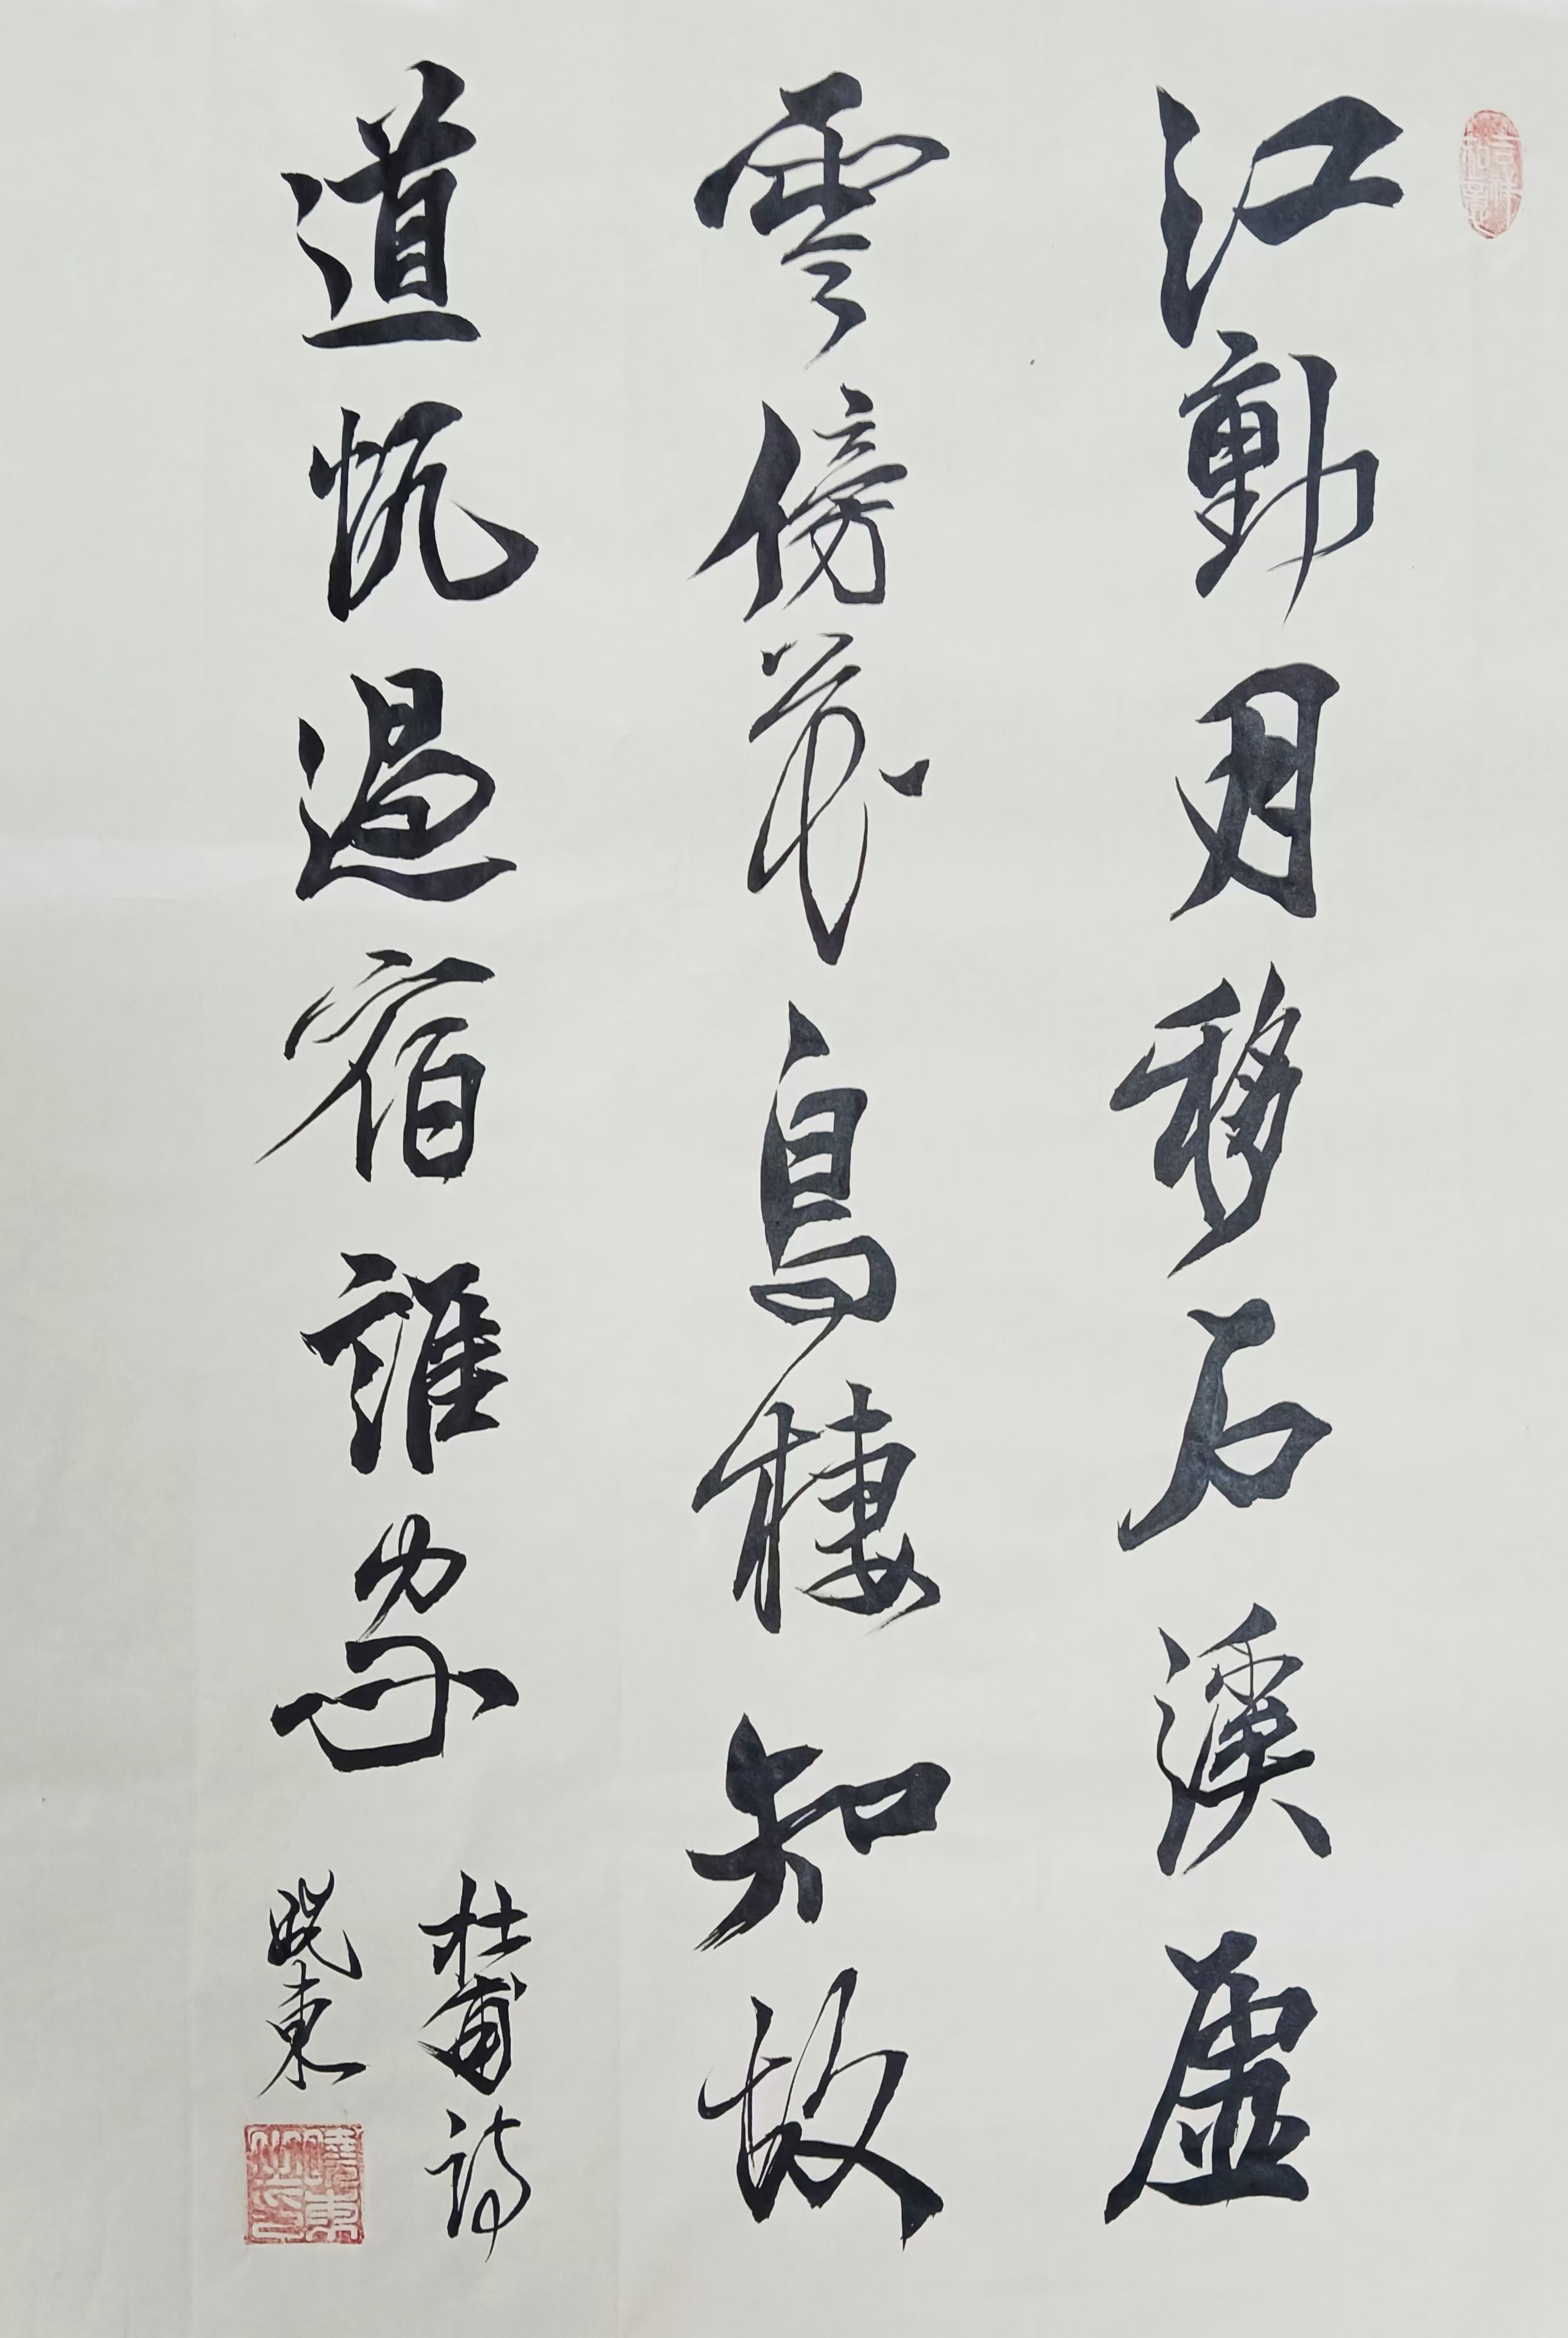 江動月移石溪虚
雲傍花鳥棲知故
道帆過宿誰家
杜甫詩
晓東